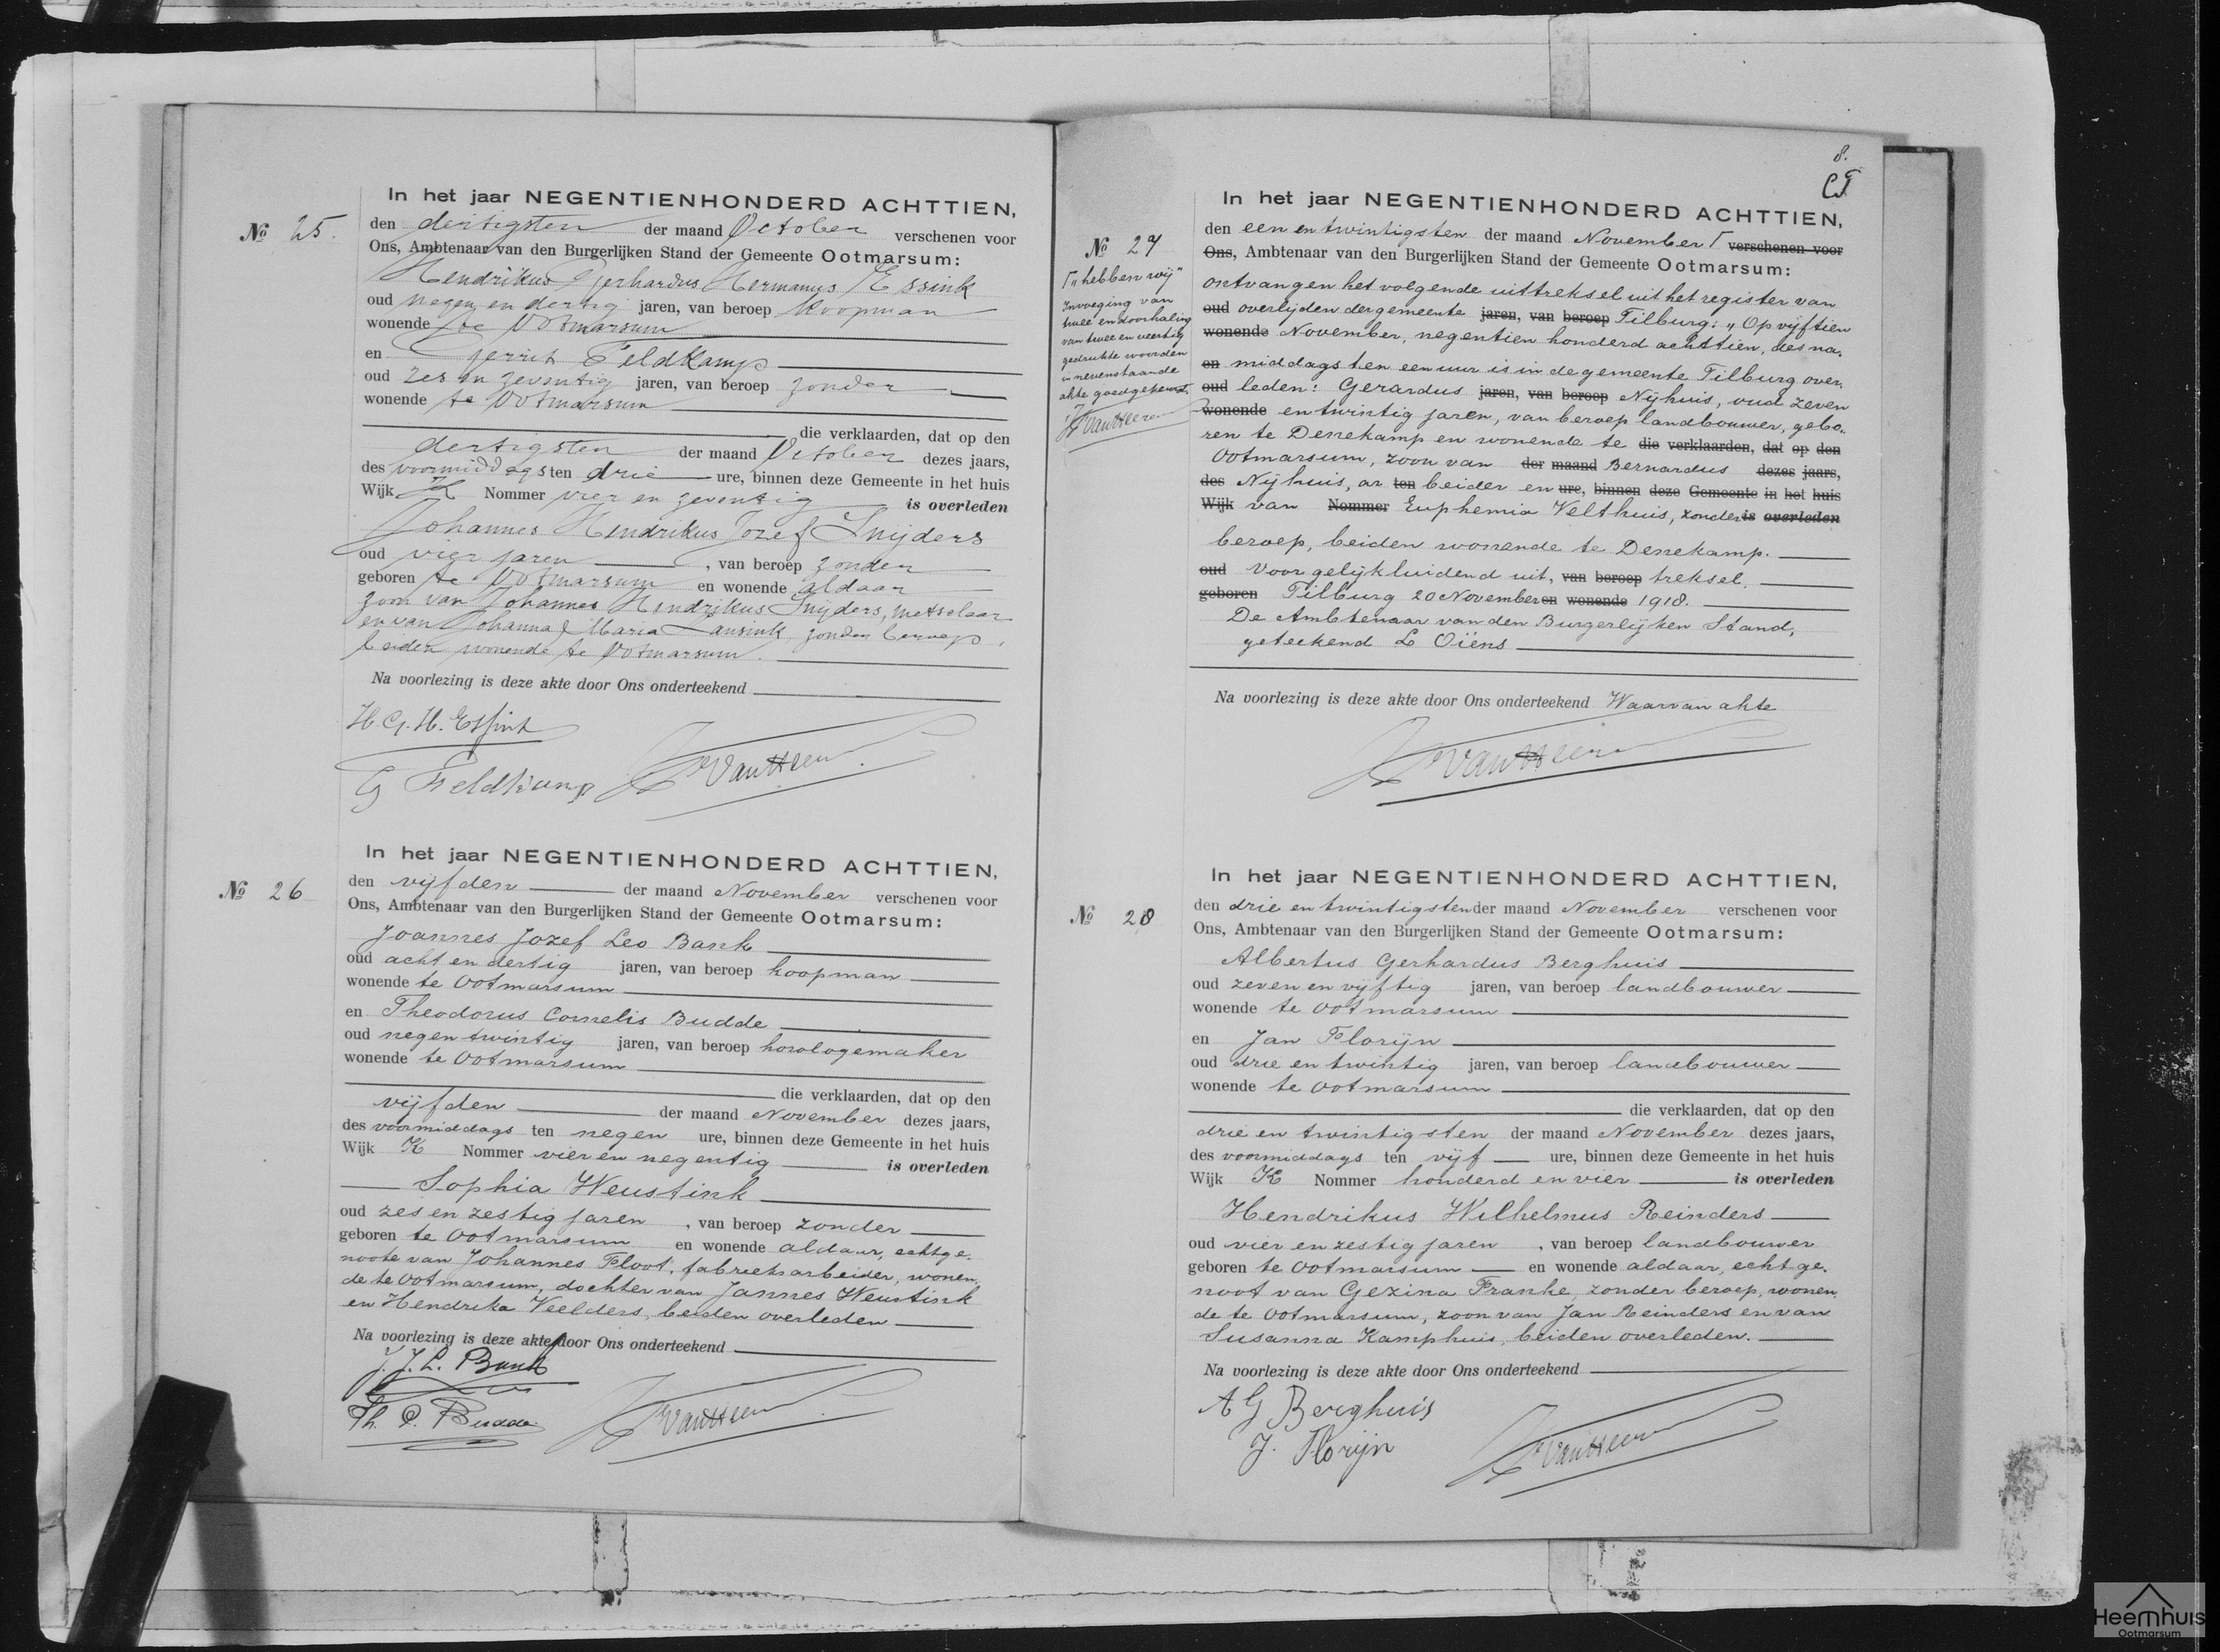 No 25.
In het jaar NEGENTIENHONDERD ACHTTIEN,
den dertigsten der maand October verschenen voor
Ons, Ambtenaar van den Burgerlijken Stand der Gemeente Ootmarsum:
Hendrikus Gerhardus Hermanus Essink
oud negen en dertig jaren, van beroep Koopman
wonende te Ootmarsum
en Gerrit Feldkamp
oud zes en zeventig jaren, van beroep zonder
wonende te Ootmarsum
die verklaarden, dat op den
dertigsten der maand October dezes jaars,
des voormiddags ten drie ure, binnen deze Gemeente in het huis
Wijk K Nommer vier en zeventig is overleden
Johannes Hendrikus Jozef Snijders
oud vier jaren, van beroep zonder
geboren te Ootmarsum en wonende aldaar
zoon van Johannes Hendrikus Snijders, metselaar
en van Johanna Maria Lansink, zonder beroep,
beiden wonende te Ootmarsum.
Na voorlezing is deze akte door Ons onderteekend
H. G. H. Essink
G Feldkamp
VanHeen
No 26
In het jaar NEGENTIENHONDERD ACHTTIEN,
den vijfden der maand November verschenen voor
Ons, Ambtenaar van den Burgerlijken Stand der Gemeente Ootmarsum:
Joannes Jozef Leo Bank
oud acht en dertig jaren, van beroep koopman
wonende te Ootmarsum
en Theodorus Cornelis Budde
oud negen twintig jaren, van beroep horologemaker
wonende te Ootmarsum
die verklaarden, dat op den
vijfden der maand November dezes jaars,
des voormiddags ten negen ure, binnen deze Gemeente in het huis
Wijk K Nommer vier en negentig is overleden
Sophia Weustink
oud zes en zestig jaren, van beroep zonder
geboren te Ootmarsum en wonende aldaar, echtge-
noote van Johannes Floot, fabrieksarbeider, wonen-
de te Ootmarsum, dochter van Jannes Weustink
en Hendrika Veelders, beiden overleden
Na voorlezing is deze akte door Ons onderteekend
J. J. L. Bank
Th. C. Budde
VanHeen
8.
No 27
In het jaar NEGENTIENHONDERD ACHTTIEN,
den een en twintigsten der maand November Γ verschenen voor
Ons, Ambtenaar van den Burgerlijken Stand der Gemeente Ootmarsum:
ontvangen het volgende uittreksel uit het register van
oud overlijden der gemeente jaren, van beroep Tilburg: "Op vijftien
wonende November, negentien honderd achttien, des na-
en middags ten een uur is in de gemeente Tilburg over-
oud leden: Gerardus jaren, van beroep Nijhuis, oud zeven
wonende en twintig jaren, van beroep landbouwer, gebo-
ren te Denekamp en wonende te die verklaarden, dat op den
Ootmarsum, zoon van der maand Bernardus dezes jaars,
des Nijhuis, ar ten beider en ure, binnen deze Gemeente in het huis
Wijk van Nommer Euphemia Velthuis, zonder is overleden
beroep, beiden wonende te Denekamp.
oud Voor gelijkluidend uit, van beroep treksel.
geboren Tilburg 20 November en wonende 1918.
De Ambtenaar van den Burgerlijken Stand,
geteekend L Oïens
Na voorlezing is deze akte door Ons onderteekend Waarvan akte
VanHeen
Γ "hebben wij"
Invoeging van
twee en doorhaling
van twee en veertig
gedrukte woorden
in nevenstaande
akte goedgekeurd.
VanHeen
No 28
In het jaar NEGENTIENHONDERD ACHTTIEN,
den drie en twintigsten der maand November verschenen voor
Ons, Ambtenaar van den Burgerlijken Stand der Gemeente Ootmarsum:
Albertus Gerhardus Berghuis
oud zeven en vijftig jaren, van beroep landbouwer
wonende te Ootmarsum
en Jan Florijn
oud drie en twintig jaren, van beroep landbouwer
wonende te Ootmarsum
die verklaarden, dat op den
drie en twintigsten der maand November dezes jaars,
des voormiddags ten vijf ure, binnen deze Gemeente in het huis
Wijk K Nommer honderd en vier is overleden
Hendrikus Wilhelmus Reinders
oud vier en zestig jaren, van beroep landbouwer
geboren te Ootmarsum en wonende aldaar, echtge-
noot van Gezina Franke, zonder beroep, wonen-
de te Ootmarsum, zoon van Jan Reinders en van
Susanna Kamphuis, beiden overleden.
Na voorlezing is deze akte door Ons onderteekend
A G Berghuis
J. Florijn
VanHeen
Heemhuis
Ootmarsum